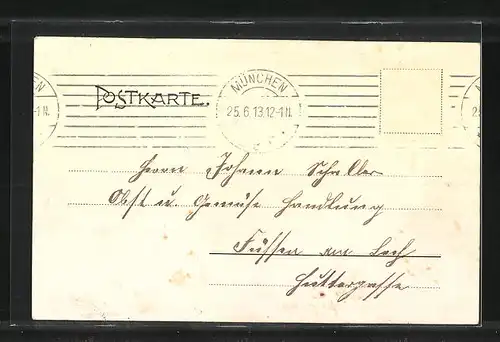 MÜNCHEN
25.6.13.12-1N.
POSTKARTE.
Herrn Johann Schaller
Obst u. Gemüse Handlung
Füssen am Lech
Huttergasse